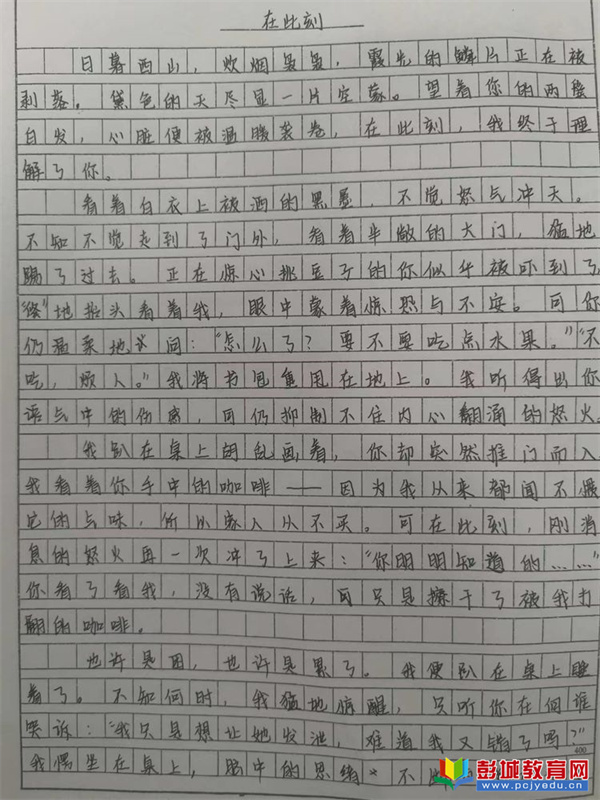 在此刻
日暮西山，炊烟袅袅，霞光的鳞片正在被
剥落。黛色的天尽显一片空蒙。望着你的两鬓
白发，心脏便被温暖袭卷，在此刻，我终于理
解了你。
看着白衣上被洒的黑墨，不觉怒气冲天。
不知不觉走到了门外，看着半敞的大门，猛地
踢了过去。正在惊心挑豆子的你似乎被吓到了
地抬头看着我，眼中蒙着惊恐与不安。可你
仍温柔地问：“怎么了？要不要吃点水果。”“不
吃，烦人。”我将书包重甩在地上。我听得出你
语气中的伤感，可仍抑制不住内心翻涌的怒火
我趴在桌上胡乱画着，你却突然推门而入
我看着你手中的咖啡——因为我从来都闻不惯
它的气味，所以家人从不买。可在此刻，刚消
息的怒火再一次冲了上来：“你明明知道的……”
你看了看我，没有说话，可只是擦干了被我打
翻的咖啡。
也许是困，也许是累了。我便趴在桌上睡
着了。不知何时，我猛地惊醒，只听你在向谁
哭诉：“我只是想让她发泄，难道我又错了吗？”
400
我愣坐在桌上，脑中的思绪不
彭城教育网
www.pcjyedu.cn